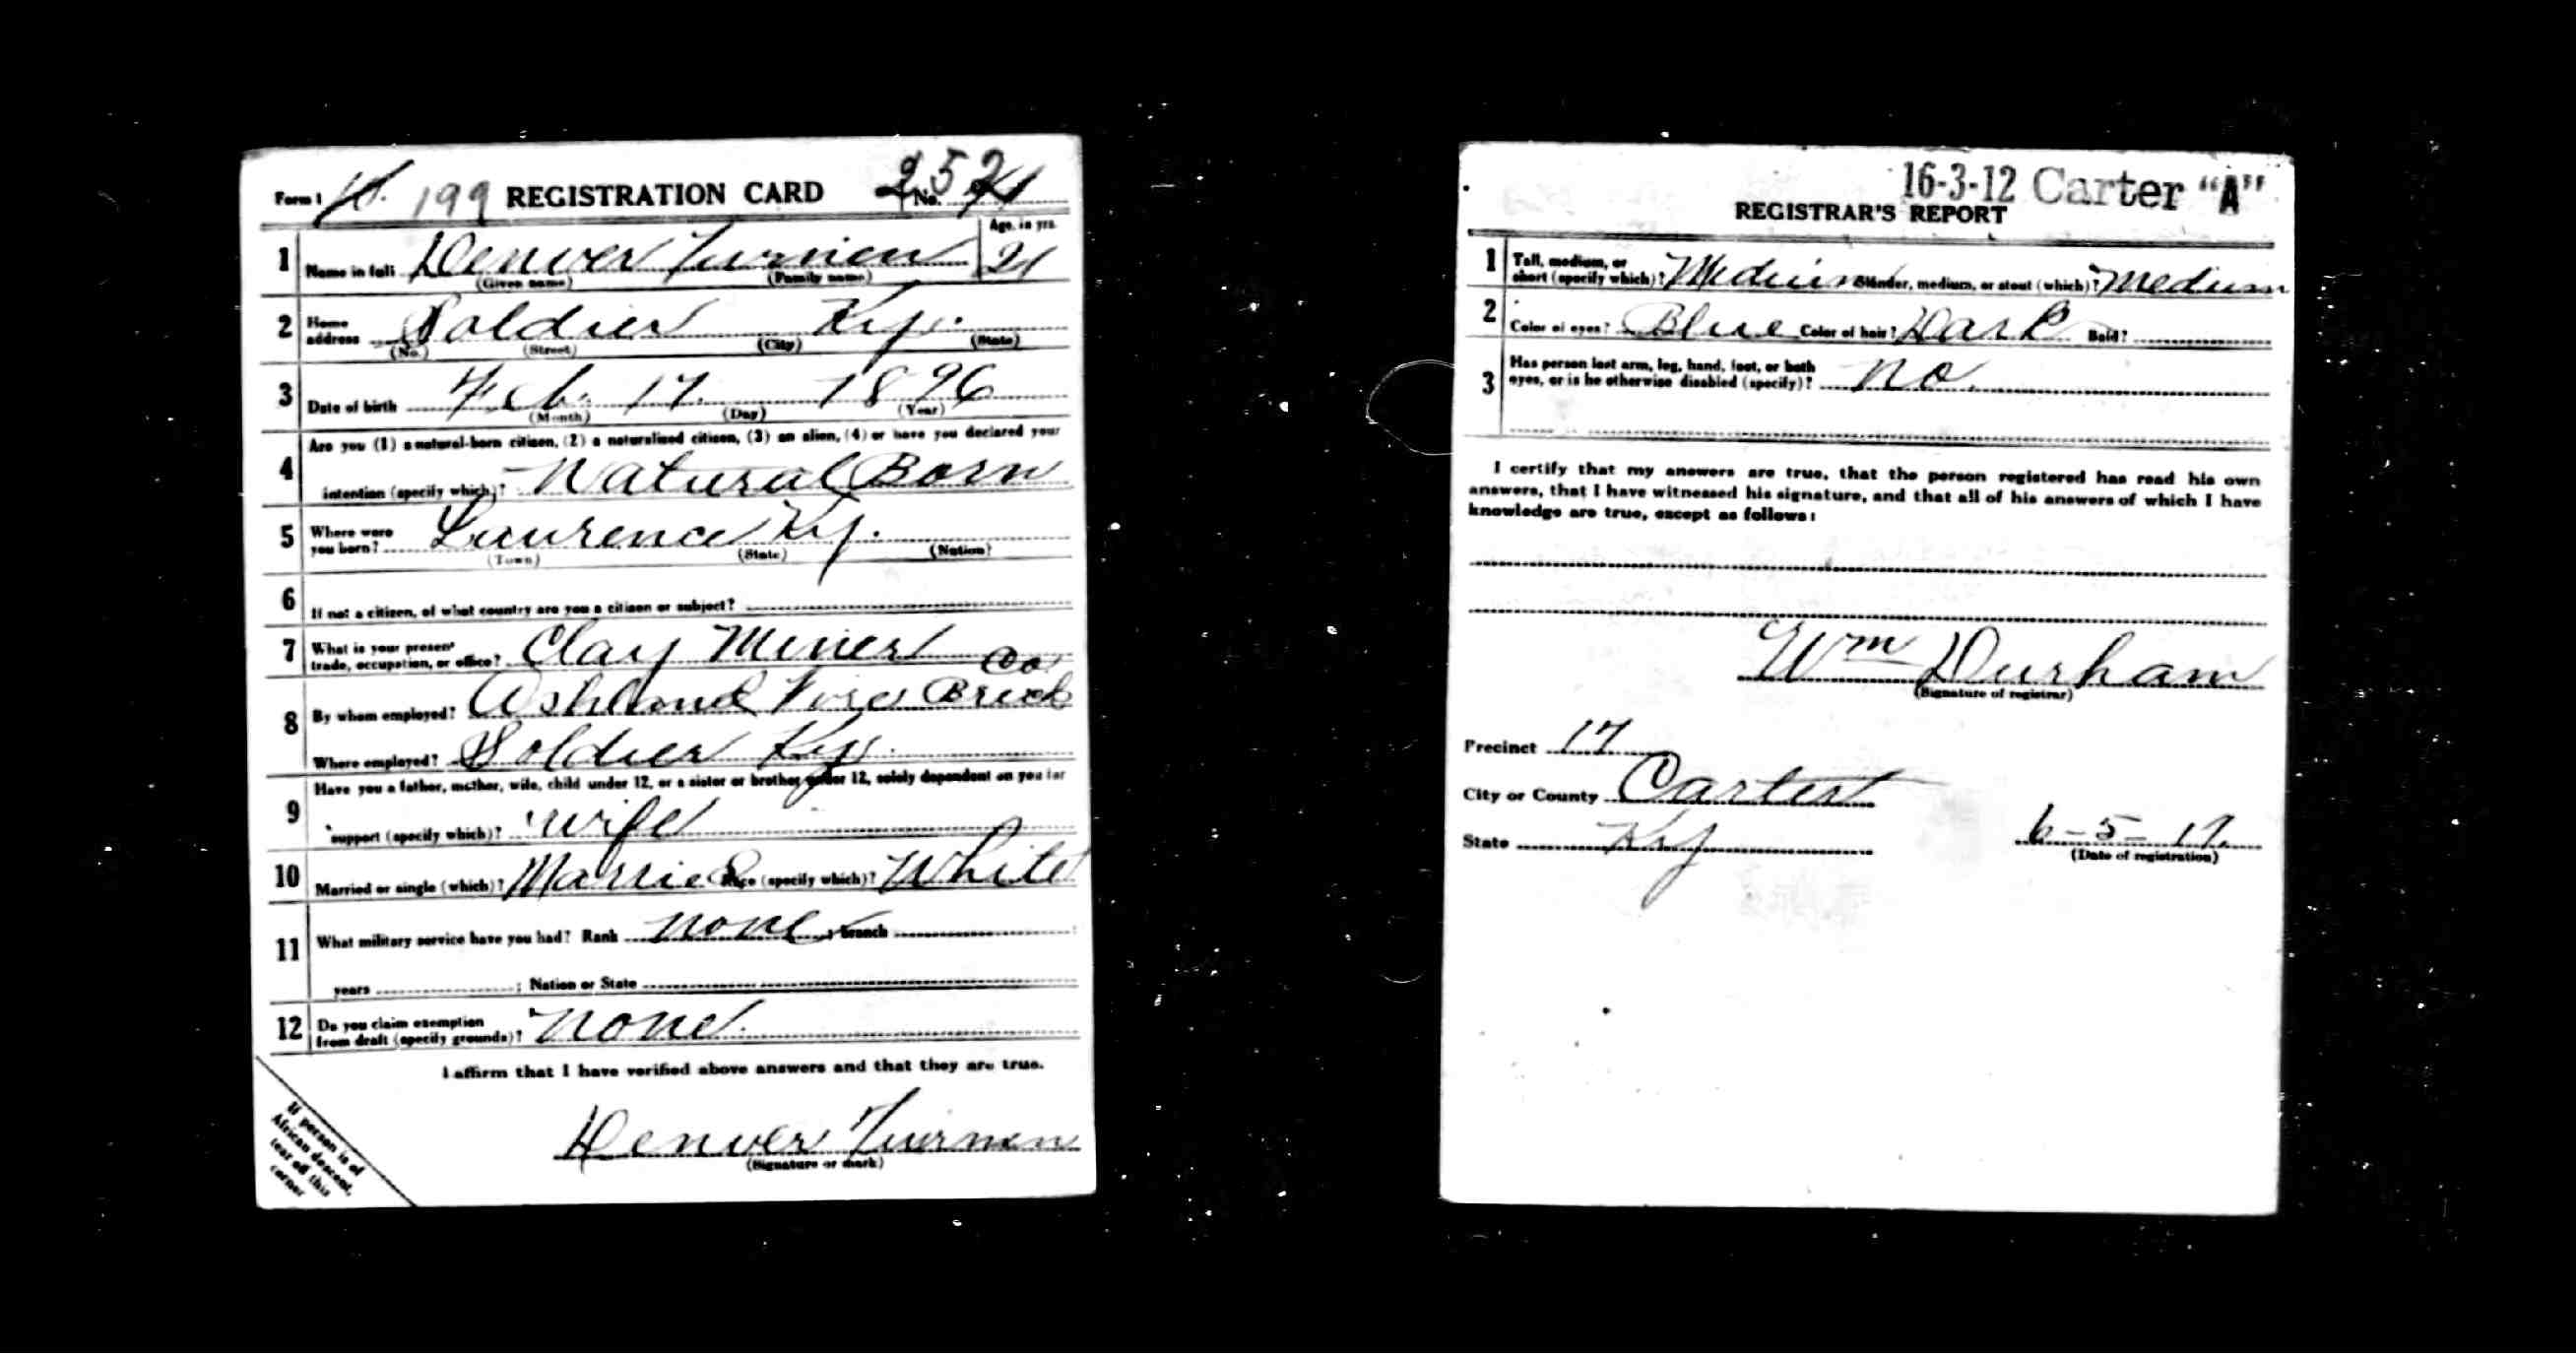 Form 1 199 REGISTRATION CARD No.
1 Name in full Denver (Given name) (Family name) Age, in yrs. 21
2 Home address Soldier Ky. (No.) (Street) (City) (State)
3 Date of birth Feb. 17. 1896 (Month) (Day) (Year)
4 Are you (1) a natural-born citizen, (2) a naturalized citizen, (3) an alien, (4) or have you declared your
intention (specify which)? Natural Born
5 Where were you born? Laurence Ky. (Town) (State) (Nation)
6 If not a citizen, of what country are you a citizen or subject?
7 What is your present trade, occupation, or office? Clay Miner
8 By whom employed? Ashland Fire Brick Co
Where employed? Soldier Ky.
9 Have you a father, mother, wife, child under 12, or a sister or brother under 12, solely dependent on you for
support (specify which)? wife
10 Married or single (which)? Married Race (specify which)? White
11 What military service have you had? Rank none ; branch
years ; Nation or State
12 Do you claim exemption from draft (specify grounds)? none.
I affirm that I have verified above answers and that they are true.
Denver
(Signature or mark)
If person is of
African descent,
tear off this
corner
16-3-12 Carter "A"
REGISTRAR'S REPORT
1 Tall, medium, or short (specify which)? Medium Slender, medium, or stout (which)? Medium
2 Color of eyes? Blue Color of hair? Dark Bald?
3 Has person lost arm, leg, hand, foot, or both
eyes, or is he otherwise disabled (specify)? no.
I certify that my answers are true, that the person registered has read his own
answers, that I have witnessed his signature, and that all of his answers of which I have
knowledge are true, except as follows:
Wm Durham
(Signature of registrar)
Precinct 17
City or County Carter
State Ky 6-5-17.
(Date of registration)